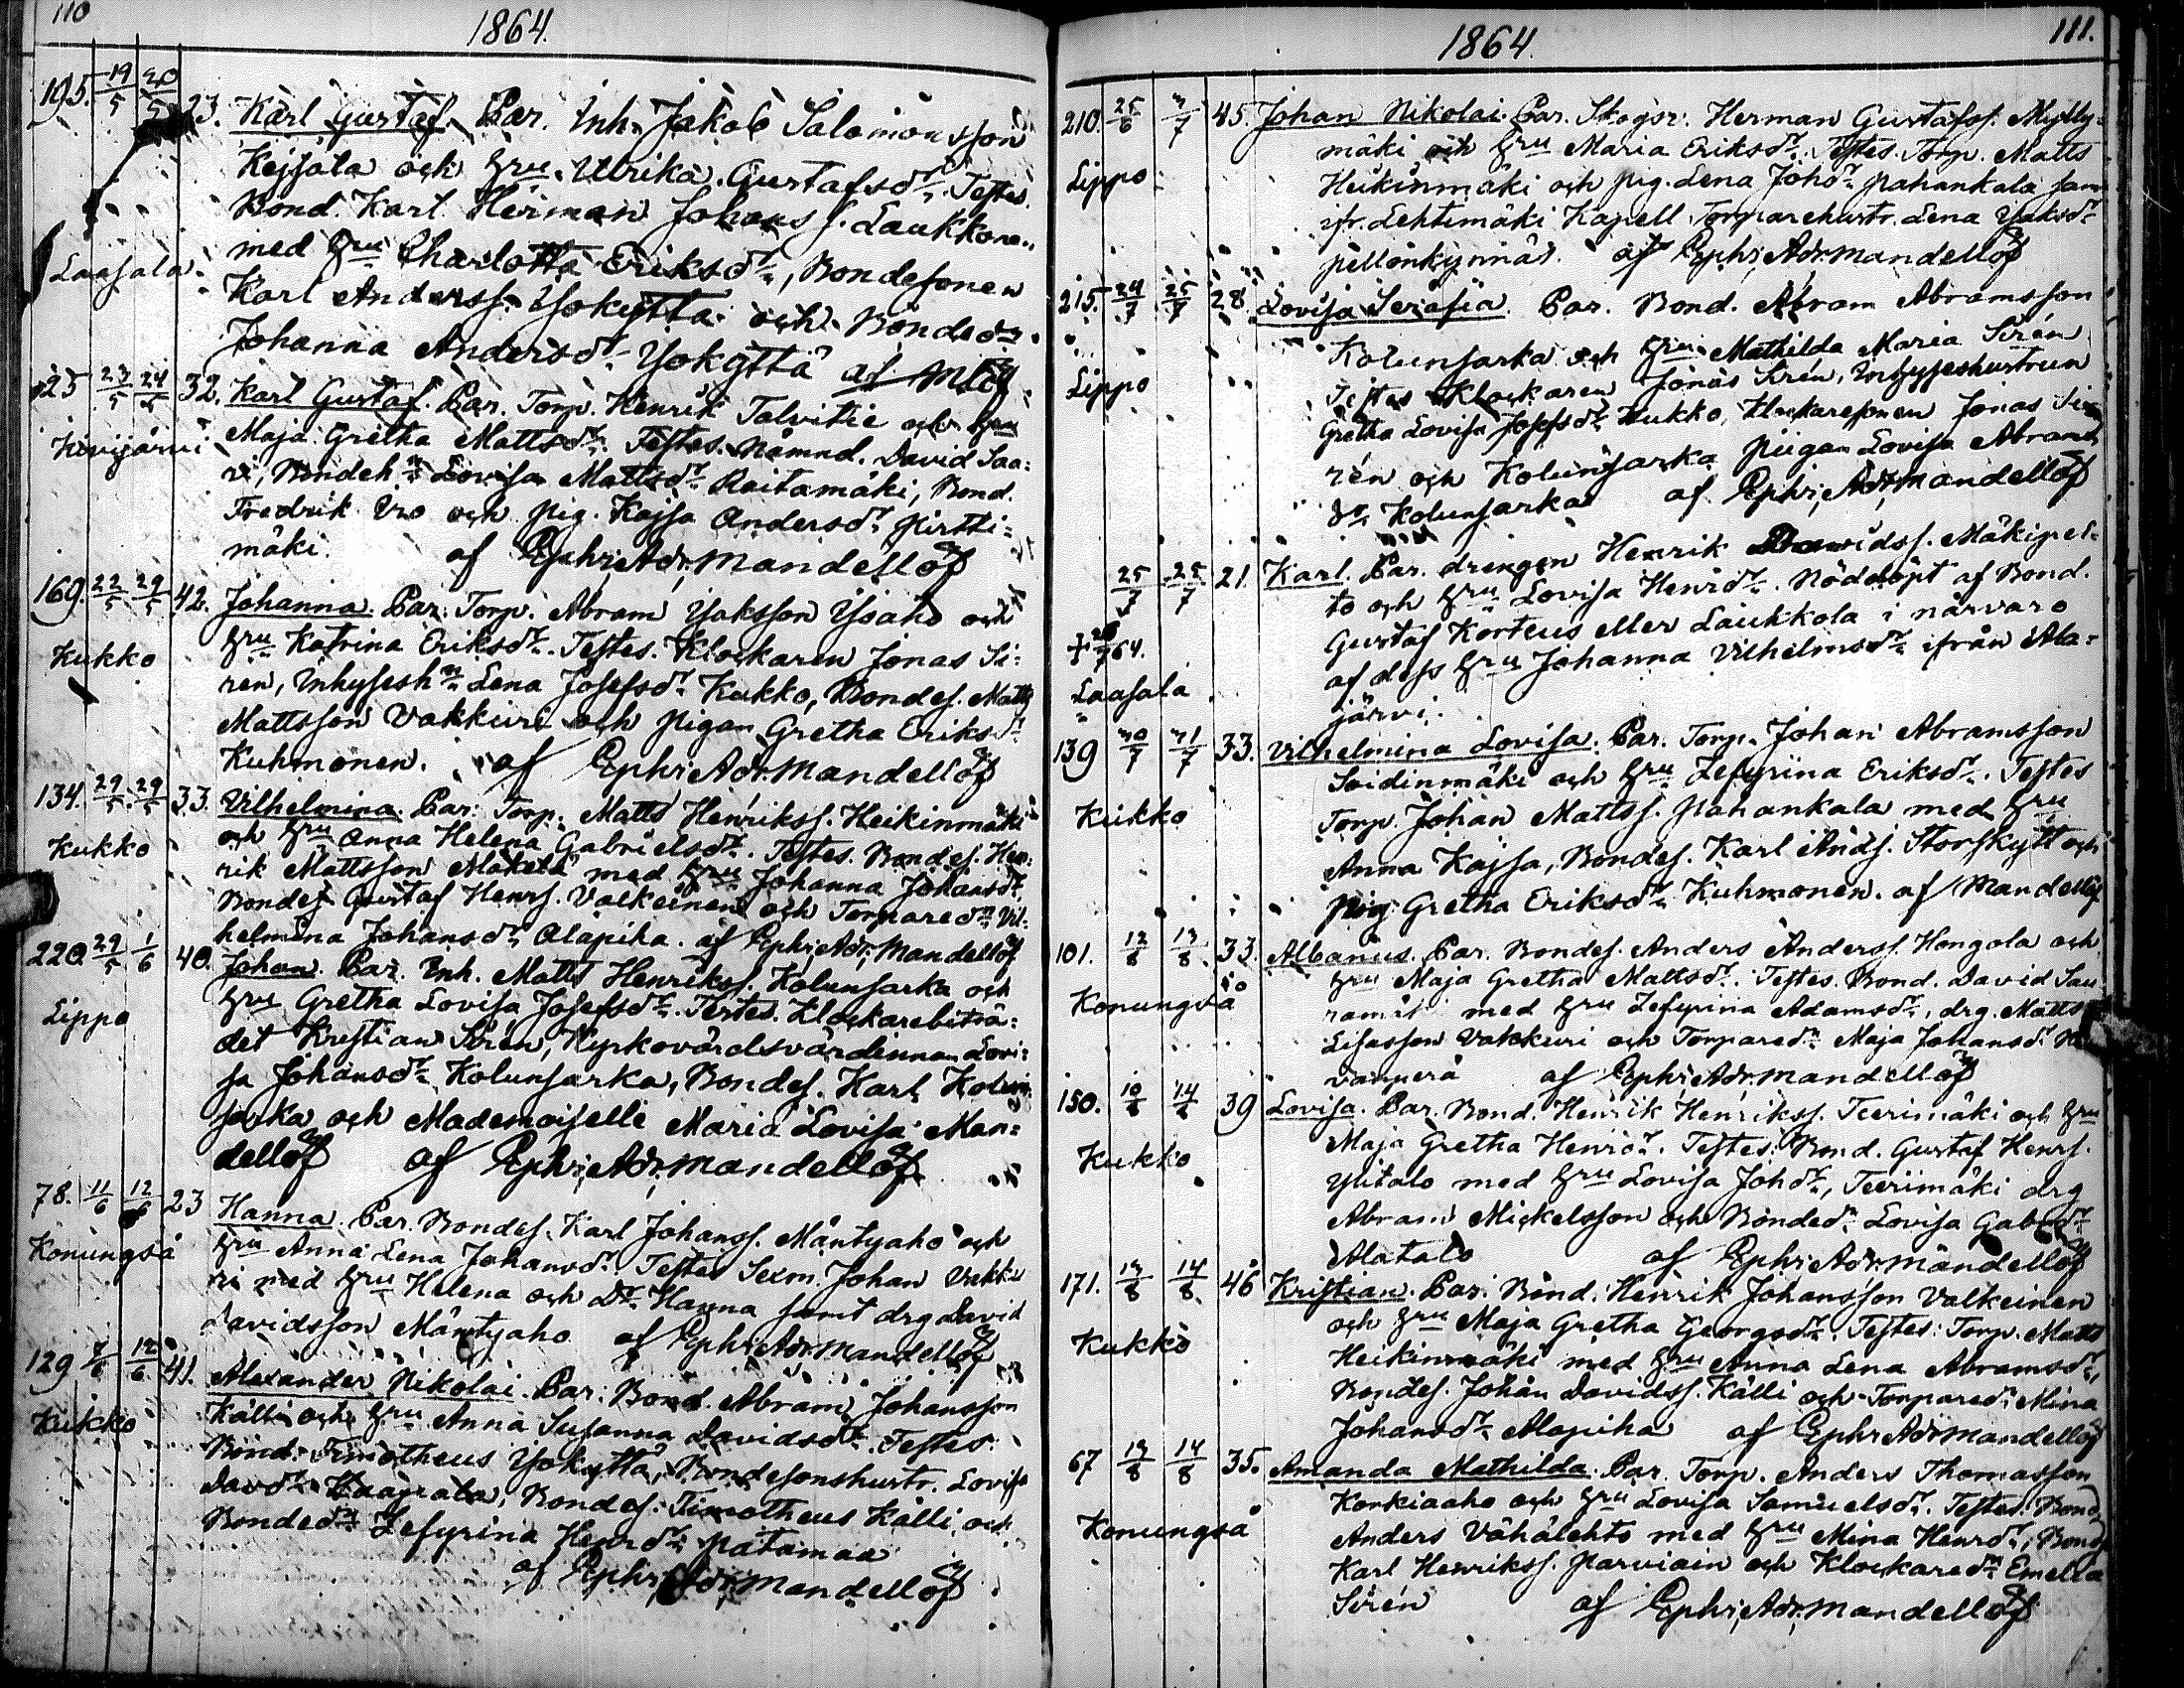 110
1864.
195. 19/5 20/5 23. Karl Gustaf. Par. Inh. Jakob Salomonsson
Kejsala och hru Ulrika Gustafsdr. Testes.
Bond. Karl Herman Johanss. Laukkonen
Laasala
med hru Charlotta Eriksdr, Bondesonen
Karl Anderss. Yokyttä och Bondedr
Johanna Andersdr Yokyttä af
125 23/5 24/5 32. Karl Gustaf. Par. Torp. Henrik Talvitie och hru
Kivijärvi
Maja Gretha Mattsdr. Testes. Nämnd. David Saa=
ri, Bondeh. Lovisa Mattsdr Raitamäki, Bond.
Fredrik Uro och pig. Kajsa Andersdr Pirtti=
mäki. af Ephr. Adr. Mandellöf
169. 22/5 29/5 42. Johanna. Par. Torp. Abram Ysaksson Ysaho och
Kukko
hru Katrina Eriksdr. Testes. Klockaren Jonas Si=
ren, Inhysesh. Lena Josefsdr Kukko, Bondes. Matts
Mattsson Vakkuri och pigan Gretha Eriksdr
Kuhmonen. af Ephr. Adr. Mandellöf
134. 29/5 29/5 33. Vilhelmina. Par. Torp. Matts Henrikss. Heikinmäki
Kukko
och hru Anna Helena Gabrielsdr. Testes. Bondes. Hen=
rik Mattsson Mäkelä med hru Johanna Johansdr,
Bondes. Gustaf Henrs. Valkeinen och Torparedr Vil=
helmina Johansdr Alapiha. af Ephr. Adr. Mandellöf
220. 29/5 1/6 40. Johan. Par. Inh. Matts Henrikss. Kolunsarka och
Lippo
hru Gretha Lovisa Josefsdr. Testes. Klockarebiträ=
det Kristian Sirén, Kyrkovärdsvärdinnan Lovi=
sa Johansdr Kolunsarka, Bondes. Karl Kolun
sarka och Mademoiselle Maria Lovisa Man=
dellöf af Ephr. Adr. Mandellöf
78. 11/6 12/6 23 Hanna. Par. Bondes. Karl Johanss. Mäntyaho och
Konungså
hru Anna Lena Johansdr. Testes Sexm. Johan Vakku
ri med hru Helena och Dr Hanna samt drg David
Davidsson Mäntyaho af Ephr. Adr. Mandellöf
129 7/6 12/6 41. Alexander Nikolai. Par. Bond. Abram Johansson
Kukko
Källi och hru Anna Susanna Davidsdr. Testes.
Bond. Timotheus Yokyttä, Bondesonshustr. Lovisa
Davdr, Bondes. Timotheus Källi och
Bondedr Zefyrina Henrdr Patamaa
af Ephr. Adr. Mandellöf
111.
1864.
210. 25/6 3/7 45. Johan Nikolai. Par. Skogsv. Herman Gustafss. Mylly=
mäki och hru Maria Eriksdr. Testes. Torp. Matts
Lippo
Heikinmäki och pig. Lena Johdr Pahankala sam
ifr. Lehtimäki Kapell Torparehustr. Lena Ysaksdr
Pellonkynnäs. af Ephr. Adr. Mandellöf
215. 24/7 25/7 28. Lovisa Serafia. Par. Bond. Abram Abramsson
Kolunsarka och hru Mathilda Maria Sirén
Lippo
Testes Klockaren Jonas Sirén, Inhyseshustrun
Gretha Lovisa Josefsdr Kukko, Klockaresonen Jonas Si
rén och Kolunsarka pigan Lovisa Abrams
dr Kolunsarka af Ephr. Adr. Mandellöf
25/7 25/7 21. Karl. Par. drengen Henrik Davidss. Mäkipel=
to och hru Lovisa Henrdr. Nöddöpt af Bond.
64.
Gustaf Korteus eller Laukkola i närvaro
Laasala
af dess hru Johanna Vilhelmsdr ifrån Ala=
järvi.
139 30/7 31/7 33. Vilhelmina Lovisa. Par. Torp. Johan Abramsson
Soidinmäki och hru Zefyrina Eriksdr. Testes
Kukko
Torp. Johan Mattss. Pahankala med hru
Anna Kajsa, Bondes. Karl Ands. Storskytt och
pig. Gretha Eriksdr Kuhmonen. af Mandellöf
101. 12/8 13/8 33. Albanus. Par. Bondes. Anders Anderss. Hongola och
Konungså
hru Maja Gretha Mattsdr. Testes. Bond. David Sau
med hru Zefyrina Adamsdr, drg. Matts
Lisasson Vakkuri och Torparedr Maja Johansdr
af Ephr. Adr. Mandellöf
150. 10/8 14/8 39 Lovisa. Par. Bond. Henrik Henrikss. Teerimäki och hru
Maja Gretha Henrdr. Testes. Bond. Gustaf Henrs.
Kukko
Ylitalo med hru Lovisa Johdr, Teerimäki drg
Abram Mickelsson och Bondedr Lovisa Gabrdr
Alatalo af Ephr. Adr. Mandellöf
171. 13/8 14/8 46 Kristian. Par. Bond. Henrik Johansson Valkeinen
Kukko
och hru Maja Gretha Georgsdr. Testes. Torp. Matts
Heikinmäki med hru Anna Lena Abramsdr,
Bondes. Johan Davidss. Källi och Torparedr Mina
Johansdr Alapiha af Ephr. Adr. Mandellöf
67 13/8 14/8 35. Amanda Mathilda. Par. Torp. Anders Thomasson
Korkiaaho och hru Lovisa Samuelsdr. Testes. Bond
Konungså
Anders Vähälehto med hru Mina Henrdr, Bonds
Karl Henrikss. Parviain och Klockaredr Emelia
Sirén af Ephr. Adr. Mandellöf